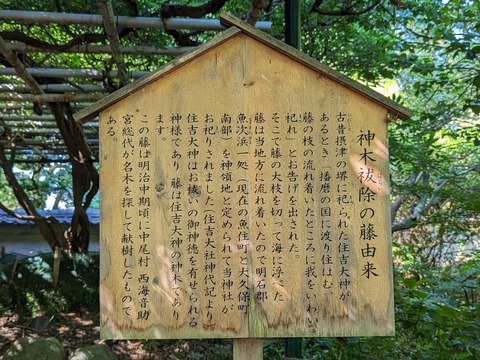 神木祓除の藤由来
古昔摂津の堺に祀られた住吉大神が
あるとき「播磨の国に渡り住はむ、
藤の枝の流れ着いたところに我をいわい
祀れ」とお告げを出された。
そこで藤の大枝を切って海に浮べた
藤は当地方に流れ着いたので明石郡
魚次浜一処(現在の魚住町と大久保町
南部)を神領地と定められて当神社が
お祀りされました(住吉大社神代記より)
住吉大神はお祓いの御神徳を有せられる
神様であり 藤は住吉大神の神木であり
ます。
この藤は明治中期頃に中尾村 西海音助
宮総代が名木を探して献樹したもので
ある。